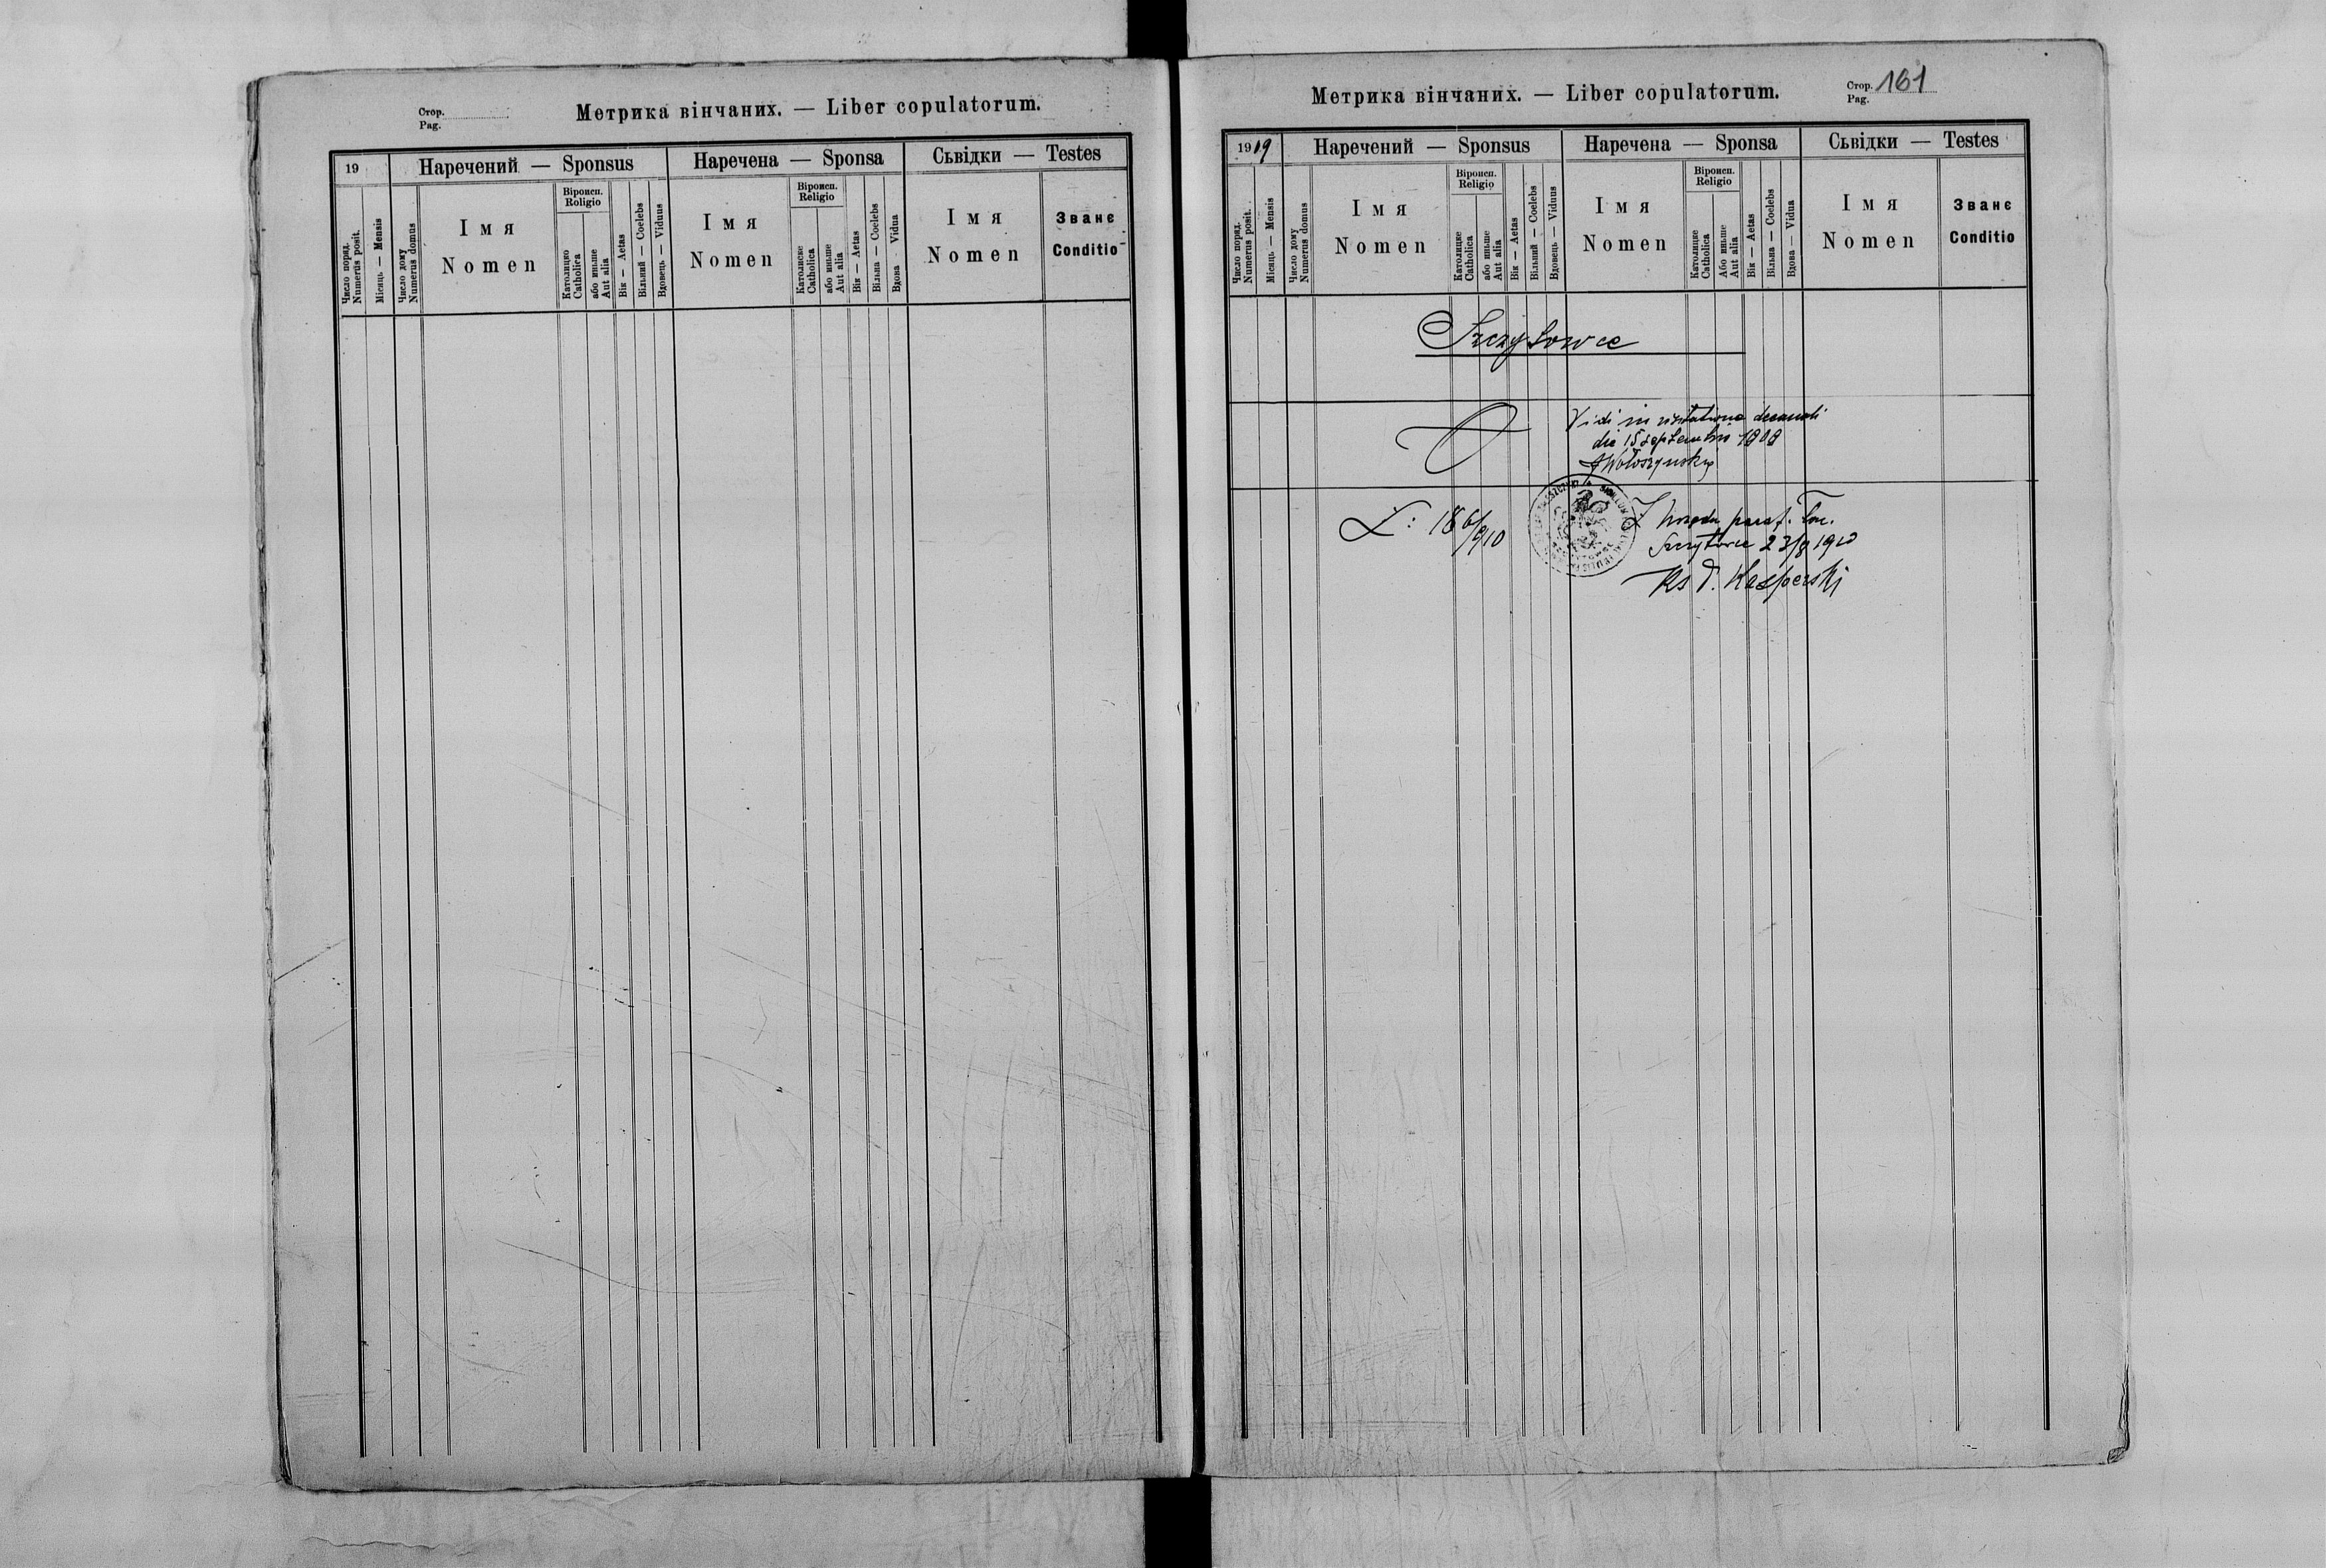 Стор.
Pag.
Метрика вінчаних. — Liber copulatorum.
19
Наречений — Sponsus
Наречена — Sponsa
Сьвідки — Testes
Число поряд.
Numerus posit.
Місяць — Mensis
Число дому
Numerus domus
Імя
Nomen
Віроисп.
Religio
Католицке
Catholica
або иньше
Aut alia
Вік — Aetas
Вільний — Coelebs
Вдовець — Viduus
Імя
Nomen
Віроисп.
Religio
Католиске
Catholica
або иньше
Aut alia
Вік — Aetas
Вільна — Coelebs
Вдова Vidua
Імя
Nomen
Званє
Conditio
Метрика вінчаних. — Liber copulatorum.
Стор. 161
Pag.
1909
Наречений — Sponsus
Наречена — Sponsa
Сьвідки — Testes
Число поряд.
Numerus posit.
Місяць — Mensis
Число дому
Numerus domus
Імя
Nomen
Віроисп.
Religio
Католицке
Catholica
або иньше
Aut alia
Вік — Aetas
Вільний — Coelebs
Вдовець — Viduus
Імя
Nomen
Віроисп.
Religio
Католицке
Catholica
Або иньше
Aut alia
Вік — Aetas
Вільна — Coelebs
Вдова — Vidua
Імя
Nomen
Званє
Conditio
Szczytowce
Vidi in visitatione decanali
die 15 septembris
JWołoszynski
L: 186/910
Z Urzędu paraf. łac.
Szczytowce 23/8 1910
Ks P. Kasperski